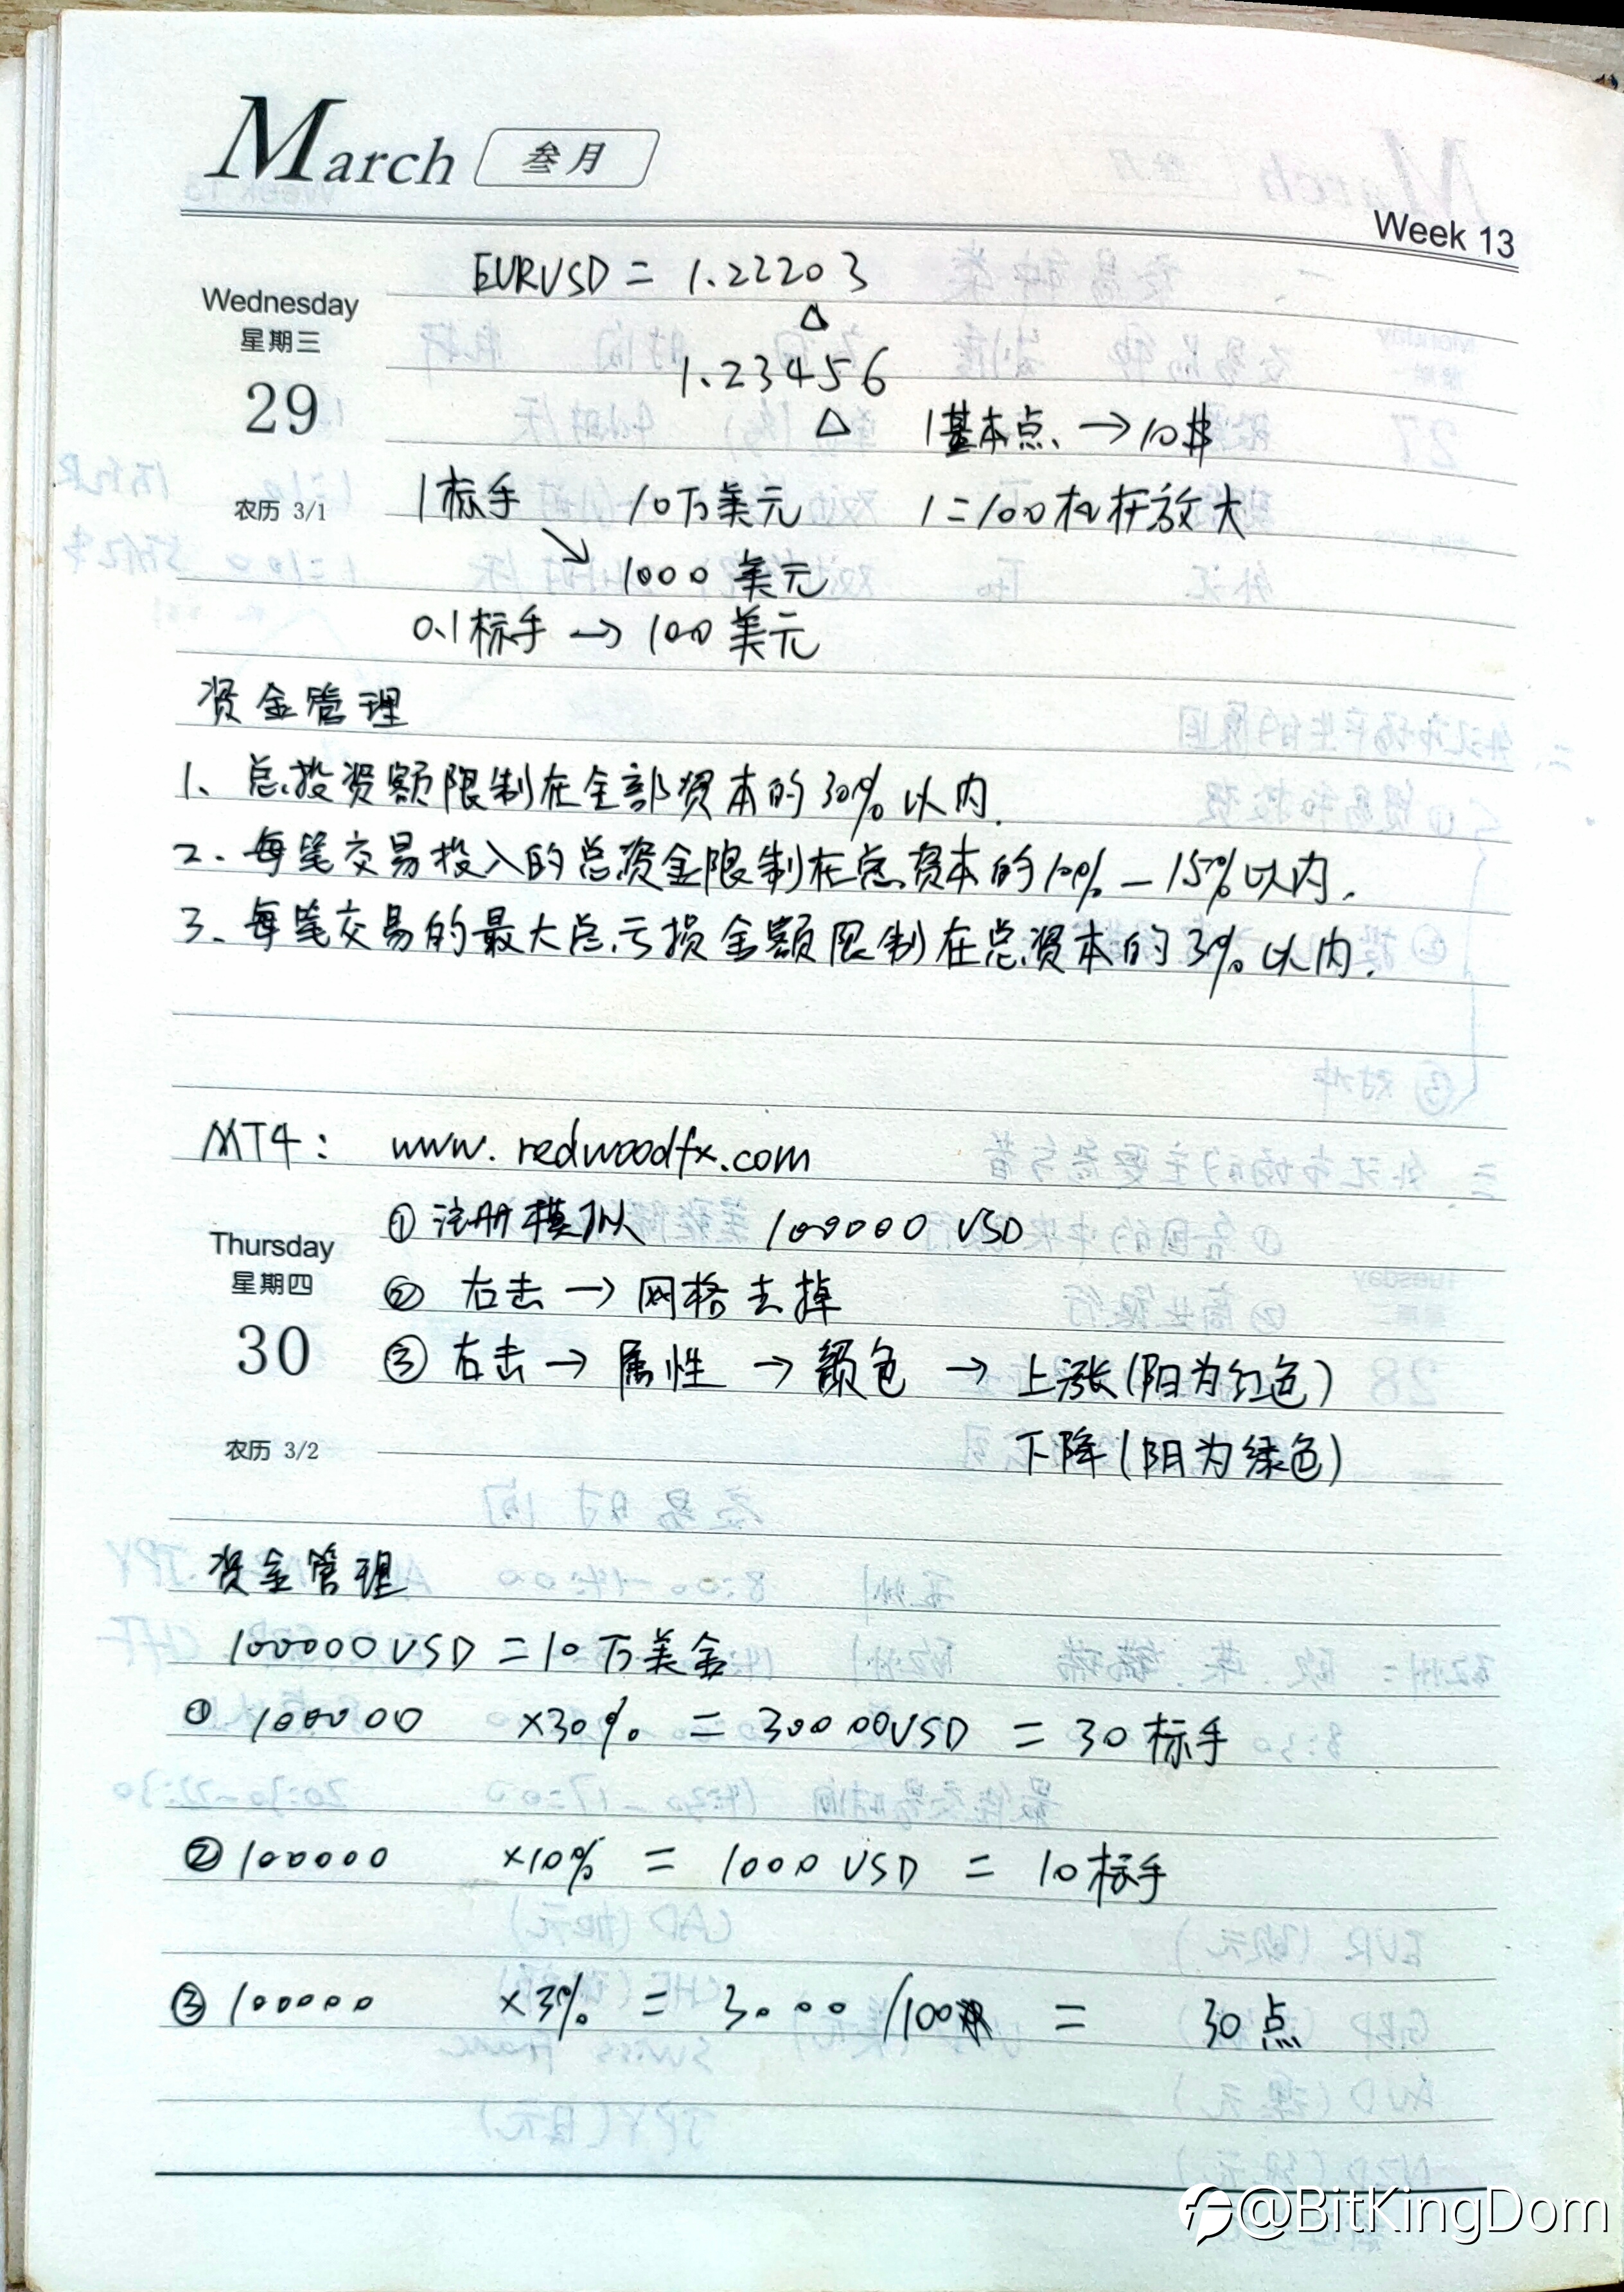 March 叁月
Week 13
Wednesday
星期三
29
农历 3/1
EURUSD = 1.22203
△
1.23456
△ 1基本点 → 10$
1标手 10万美元 1=100杠杆放大
↘ 1000美元
0.1标手 → 100美元
资金管理
1、总投资额限制在全部资本的30%以内.
2、每笔交易投入的总资金限制在总资本的10%—15%以内.
3、每笔交易的最大总亏损金额限制在总资本的3%以内.
MT4: www.redwoodfx.com
Thursday
星期四
30
农历 3/2
① 注册模拟 100000 USD
② 右击 → 网格去掉
③ 右击 → 属性 → 颜色 → 上涨(阳为红色)
下降(阴为绿色)
资金管理
100000USD = 10万美金
① 100000 ×30% = 30000USD = 30标手
② 100000 ×10% = 1000 USD = 10标手
③ 100000 ×3% = 3000 /100 = 30点
@BitKingDom